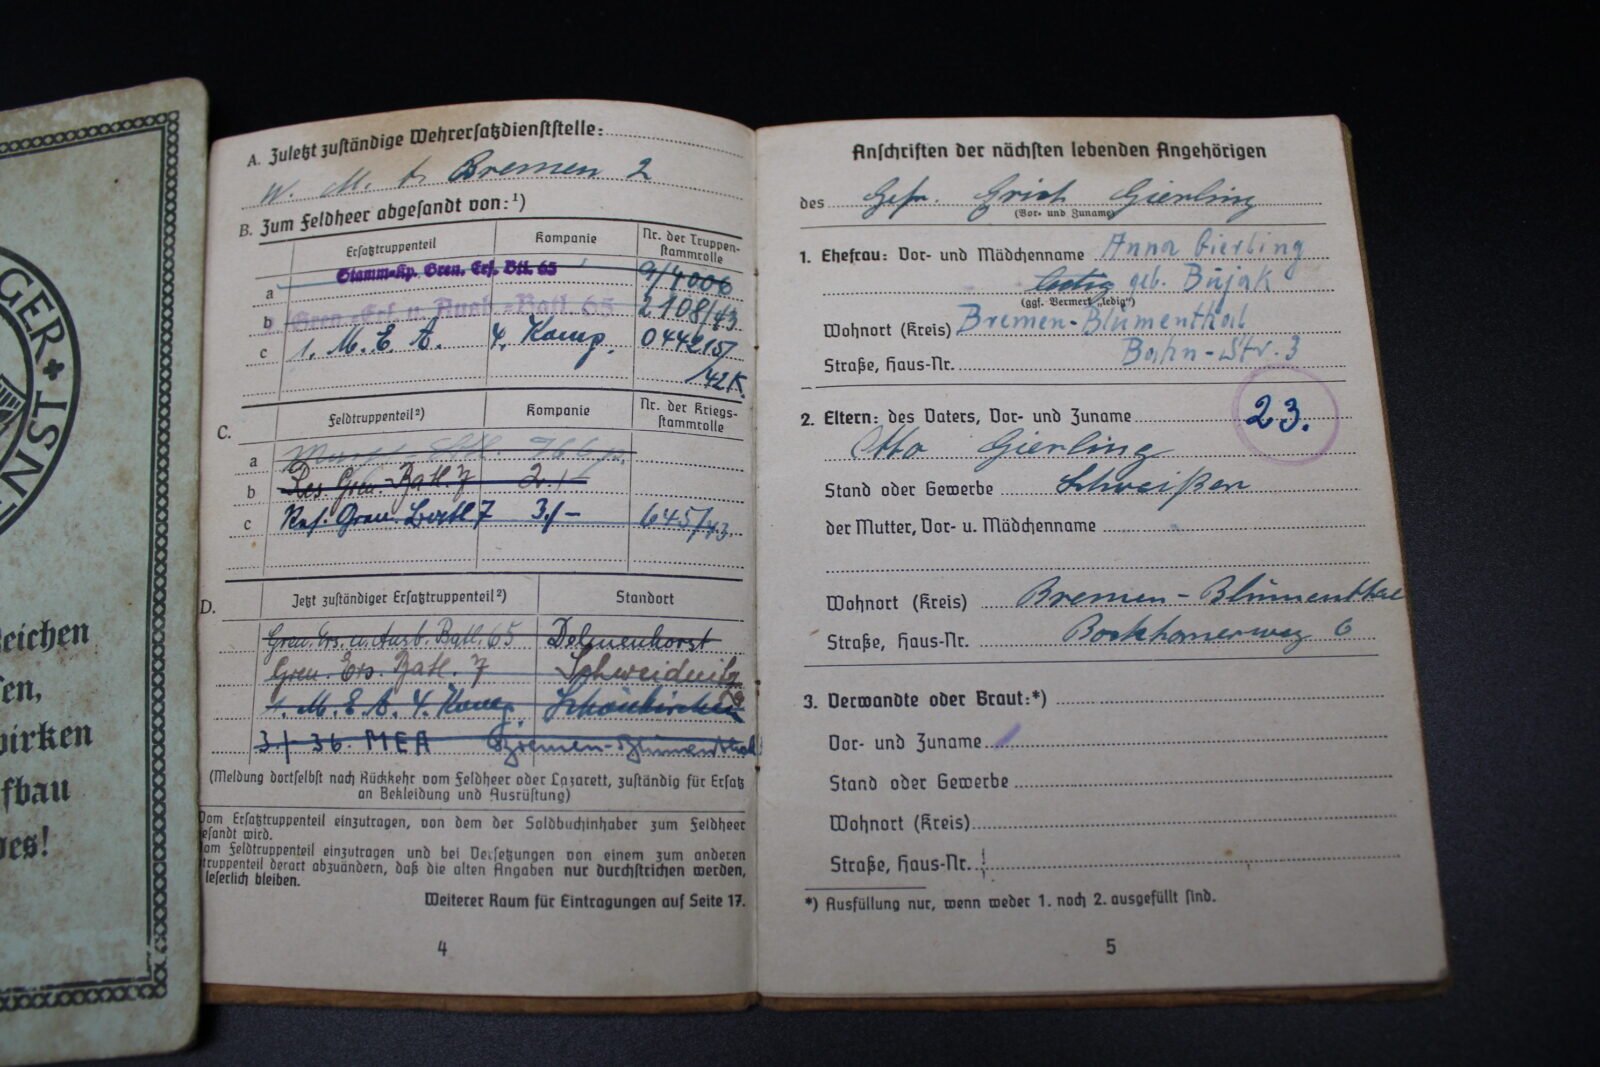 GER
INST
eichen
en,
wirken
fbau
es!
A. Zuletzt zuständige Wehrersatzdienststelle:
W. M. A. Bremen 2
B. Zum Feldheer abgesandt von: ¹)
Ersatztruppenteil Kompanie Nr. der Truppen-
stammrolle
a Stamm-Kp. Gren. Ers. Btl. 65 9/4006
b Gren.-Ers. u. Ausb.-Batl. 65 2108/43
c 1. M. E. A. 4. Komp. 044215/
/42K.
C. Feldtruppenteil²) Kompanie Nr. der Kriegs-
stammrolle
a
b Res. Gren. Batl. 7 2./-
c Res. Gren. Batl 7 3./- 645/43.
D. Jetzt zuständiger Ersatztruppenteil²) Standort
Gren. Ers. u. Ausb. Batl. 65 Delmenhorst
Gren. Ers. Batl. 7 Schweidnitz
1. M. E. A. 4. Komp. Schönkirchen
3./- 36. MEA Bremen-Blumenthal
(Meldung dortselbst nach Rückkehr vom Feldheer oder Lazarett, zuständig für Ersatz
an Bekleidung und Ausrüstung)
Vom Ersatztruppenteil einzutragen, von dem der Soldbuchinhaber zum Feldheer
esandt wird.
om Feldtruppenteil einzutragen und bei Versetzungen von einem zum anderen
truppenteil derart abzuändern, daß die alten Angaben nur durchstrichen werden,
leserlich bleiben.
Weiterer Raum für Eintragungen auf Seite 17.
4
Anschriften der nächsten lebenden Angehörigen
des Gefr. Erich Gierling
(Vor- und Zuname)
1. Ehefrau: Vor- und Mädchenname Anna Gierling
ledig geb. Bujak
(ggf. Vermerk „ledig“)
Wohnort (Kreis) Bremen-Blumenthal
Straße, Haus-Nr. Bahn-Str. 3
2. Eltern: des Vaters, Vor- und Zuname 23.
Otto Gierling
Stand oder Gewerbe Schweißer
der Mutter, Vor- u. Mädchenname
Wohnort (Kreis) Bremen-Blumenthal
Straße, Haus-Nr. Bockhornerweg 6
3. Verwandte oder Braut:*)
Vor- und Zuname
Stand oder Gewerbe
Wohnort (Kreis)
Straße, Haus-Nr.
*) Ausfüllung nur, wenn weder 1. noch 2. ausgefüllt sind.
5